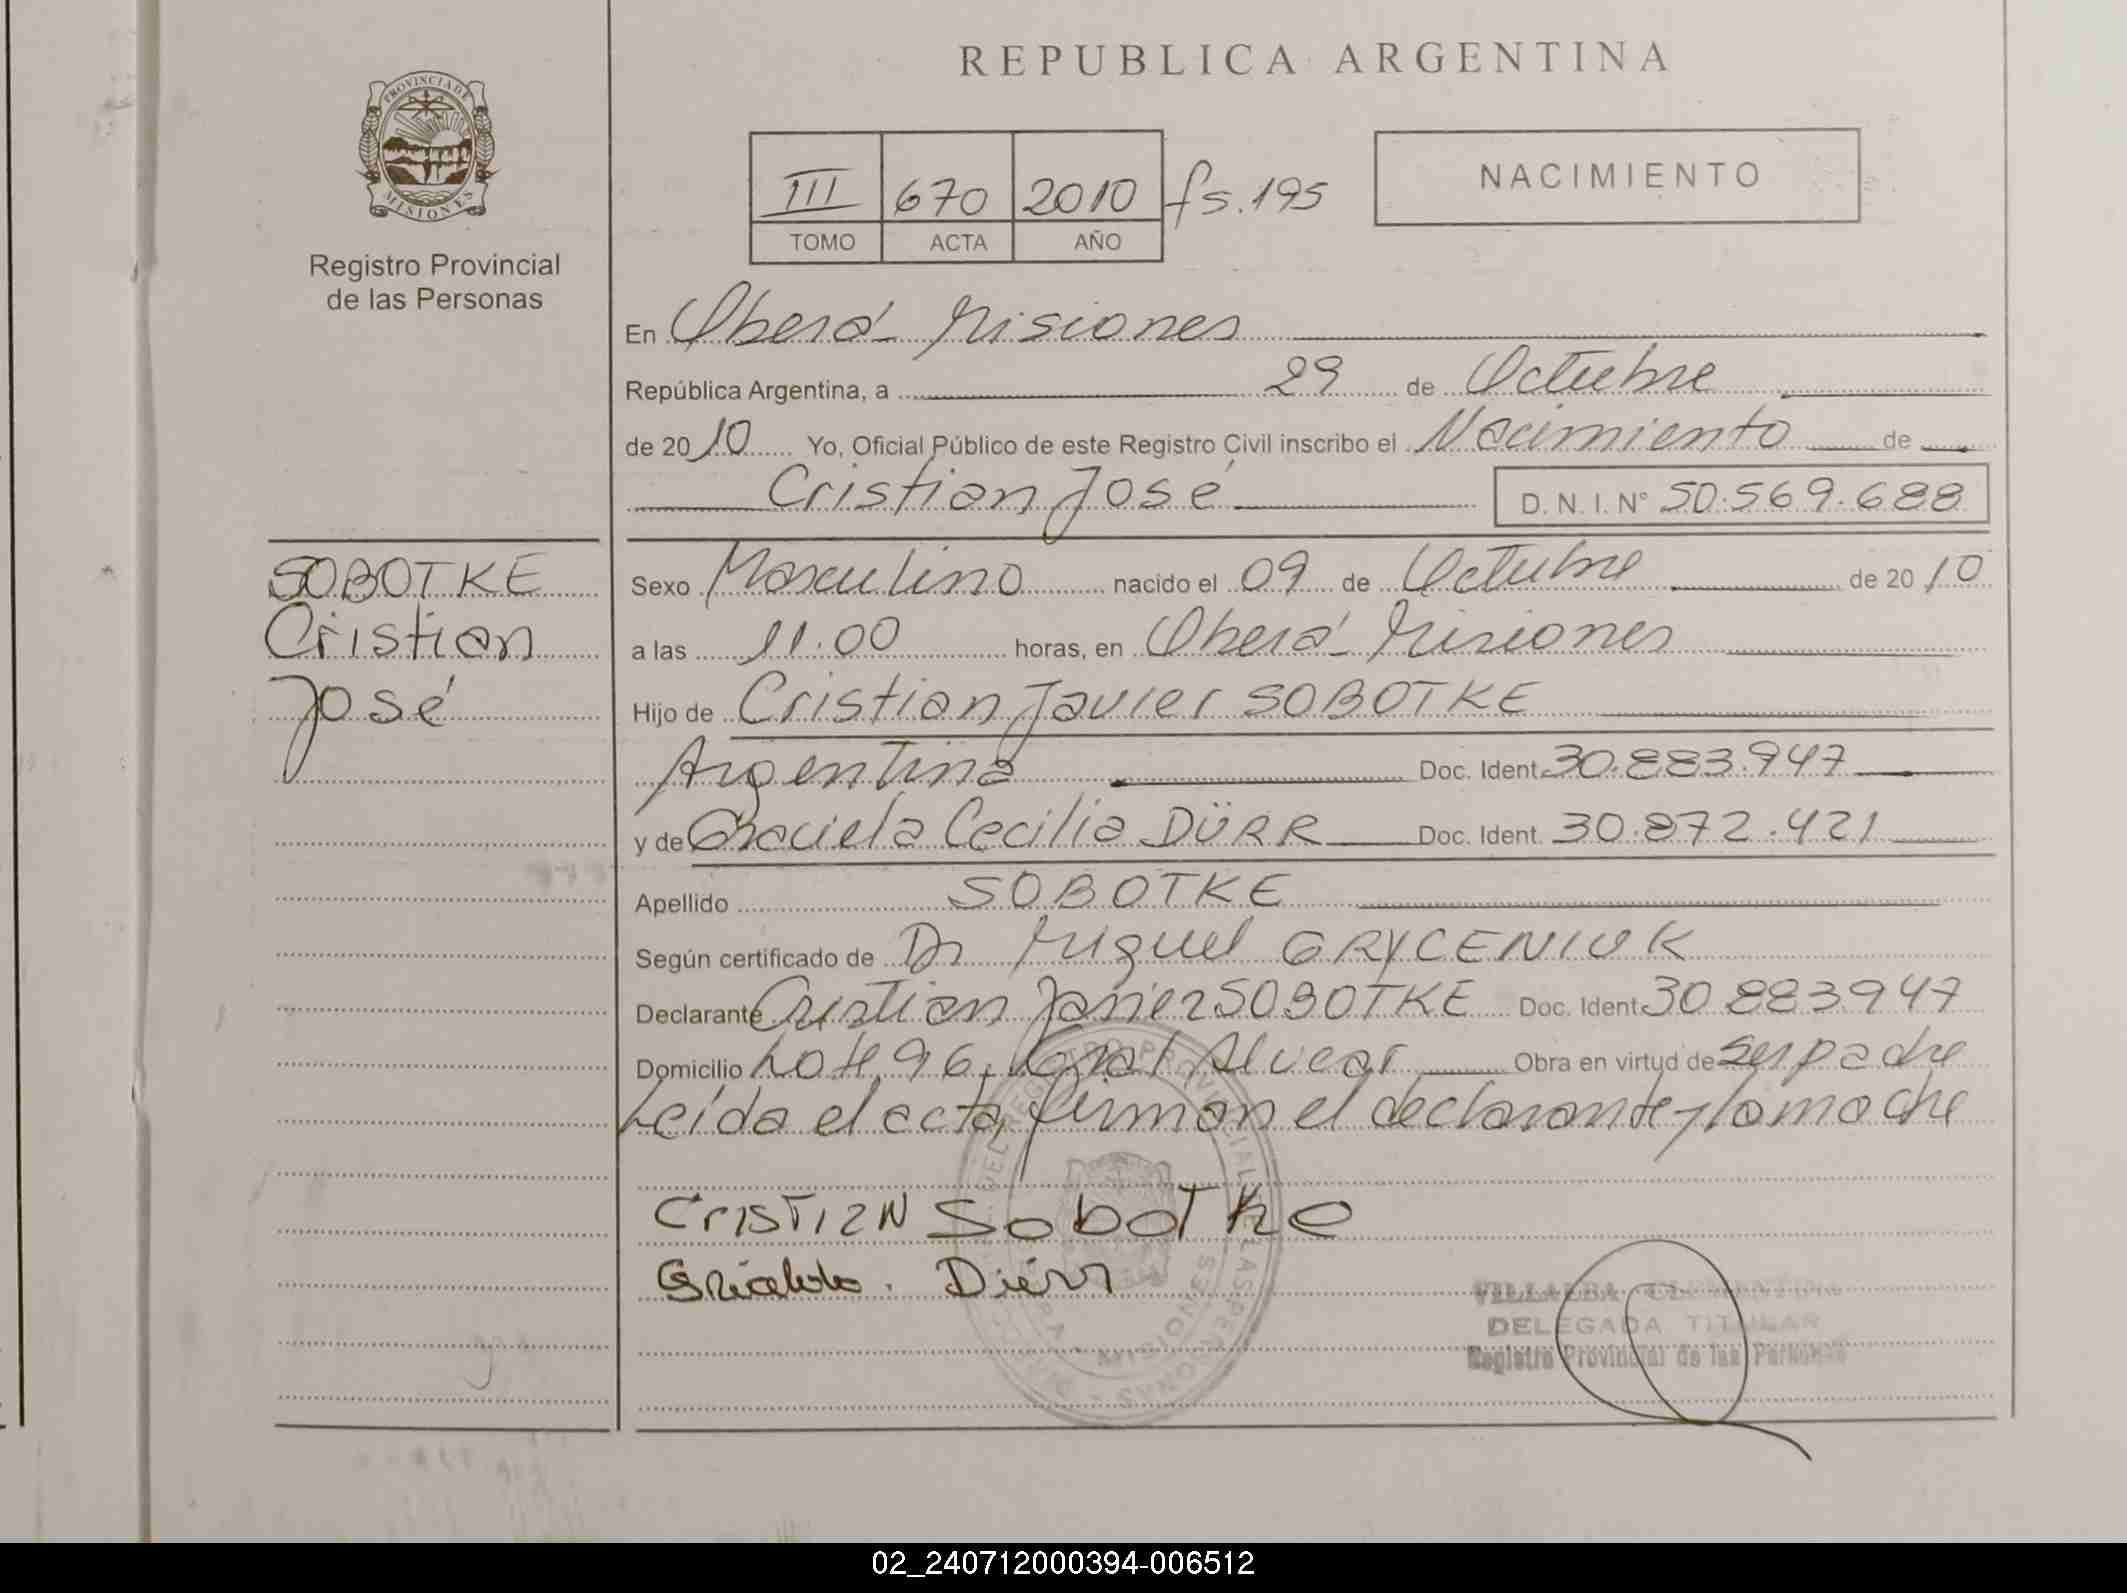 REPUBLICA ARGENTINA
PROVINCIA DE
MISIONES
Registro Provincial
de las Personas
III 670 2010 fs.195
TOMO ACTA AÑO
NACIMIENTO
En Oberá - Misiones
República Argentina, a 29 de Octubre
de 2010 Yo, Oficial Público de este Registro Civil inscribo el Nacimiento de
Cristian José D.N.I. N° 50.569.688
SOBOTKE
Cristian
José
Sexo Masculino nacido el 09 de Octubre de 2010
a las 11.00 horas, en Oberá - Misiones
Hijo de Cristian Javier SOBOTKE
Argentina Doc. Ident. 30.883.947
y de Graciela Cecilia DÜRR Doc. Ident. 30.872.421
Apellido SOBOTKE
Según certificado de Dr Miguel GRYCENIUK
Declarante Cristian Javier SOBOTKE Doc. Ident. 30.883.947
Domicilio Lote 96, Gral Alvear Obra en virtud de ser padre
Leída el acta, firman el declarante y la madre
CRISTIAN SoboTke
Dürr
VILLALBA CLEMENTINA
DELEGADA TITULAR
Registro Provincial de las Personas
02_240712000394-006512